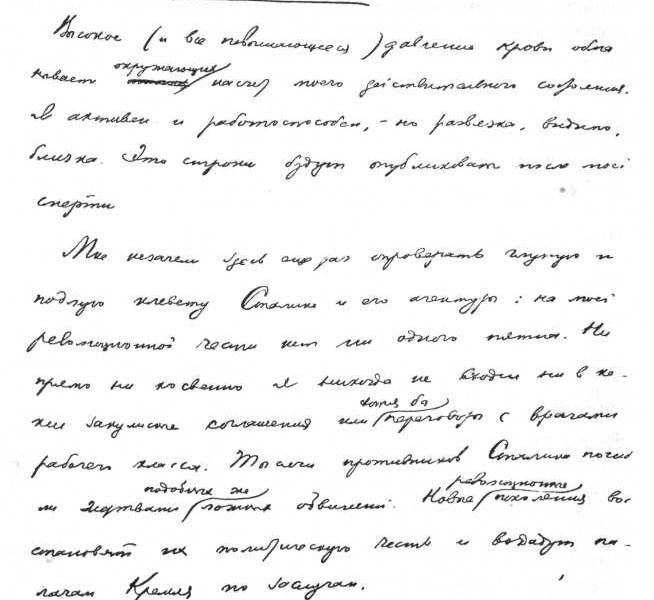 Высокое (и все повышающееся) давление крови обма
нывает окружающих насчет моего действительного состояния.
Я активен и работоспособен, – но развязка, видимо,
близка. Эти строки будут опубликованы после моей
смерти
Мне незачем здесь еще раз опровергать глупую и
подлую клевету Сталина и его агентуры: на моей
революционной чести нет ни одного пятна. Ни
прямо ни косвенно я никогда не входил ни в ка-
кие закулисные соглашения или хотя бы переговоры с врагами
рабочего класса. Тысячи противников Сталина погиб
ли жертвами подобных же ложных обвинений. Новые революционные поколения вос
становят их политическую честь и воздадут па-
лачам Кремля по заслугам.